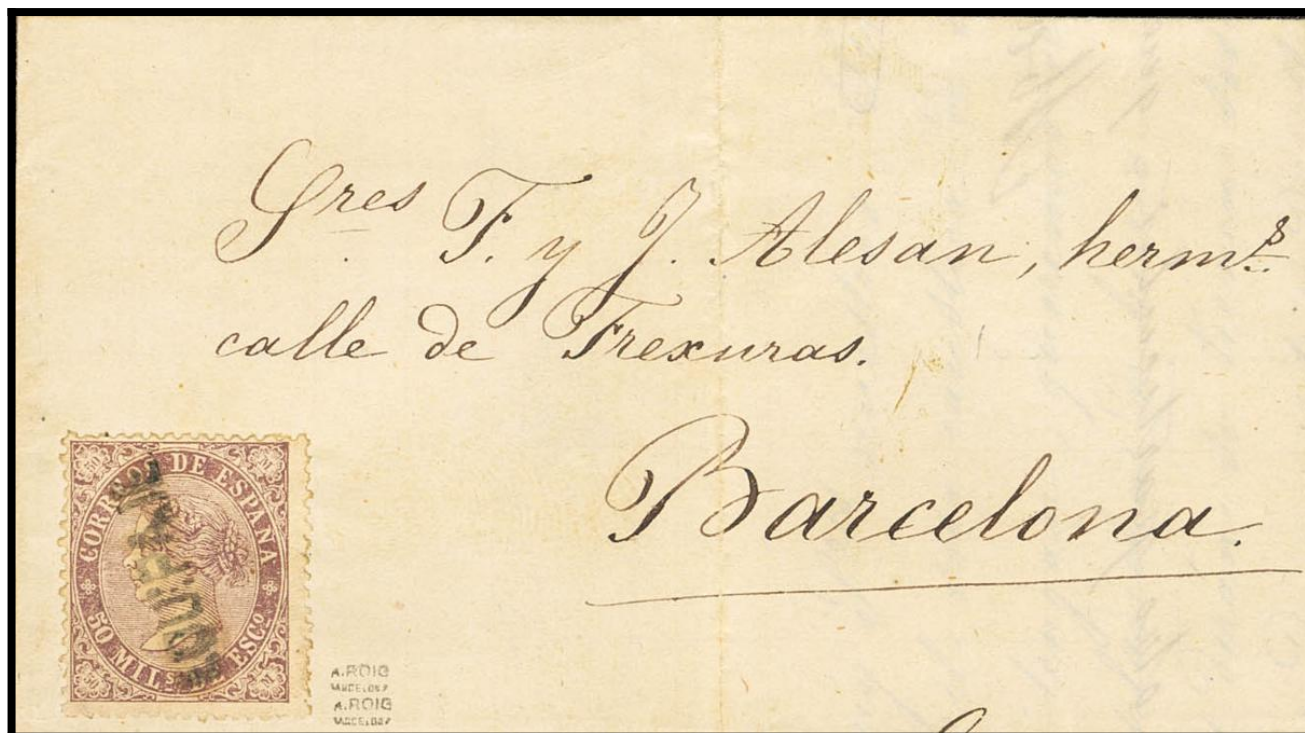 Sres F. y J. Alesan, herms.
calle de Frexuras.
Barcelona.
CORREOS DE ESPAÑA
50 MILS ESCO.
A.ROIG
BARCELONA
A.ROIG
BARCELONA